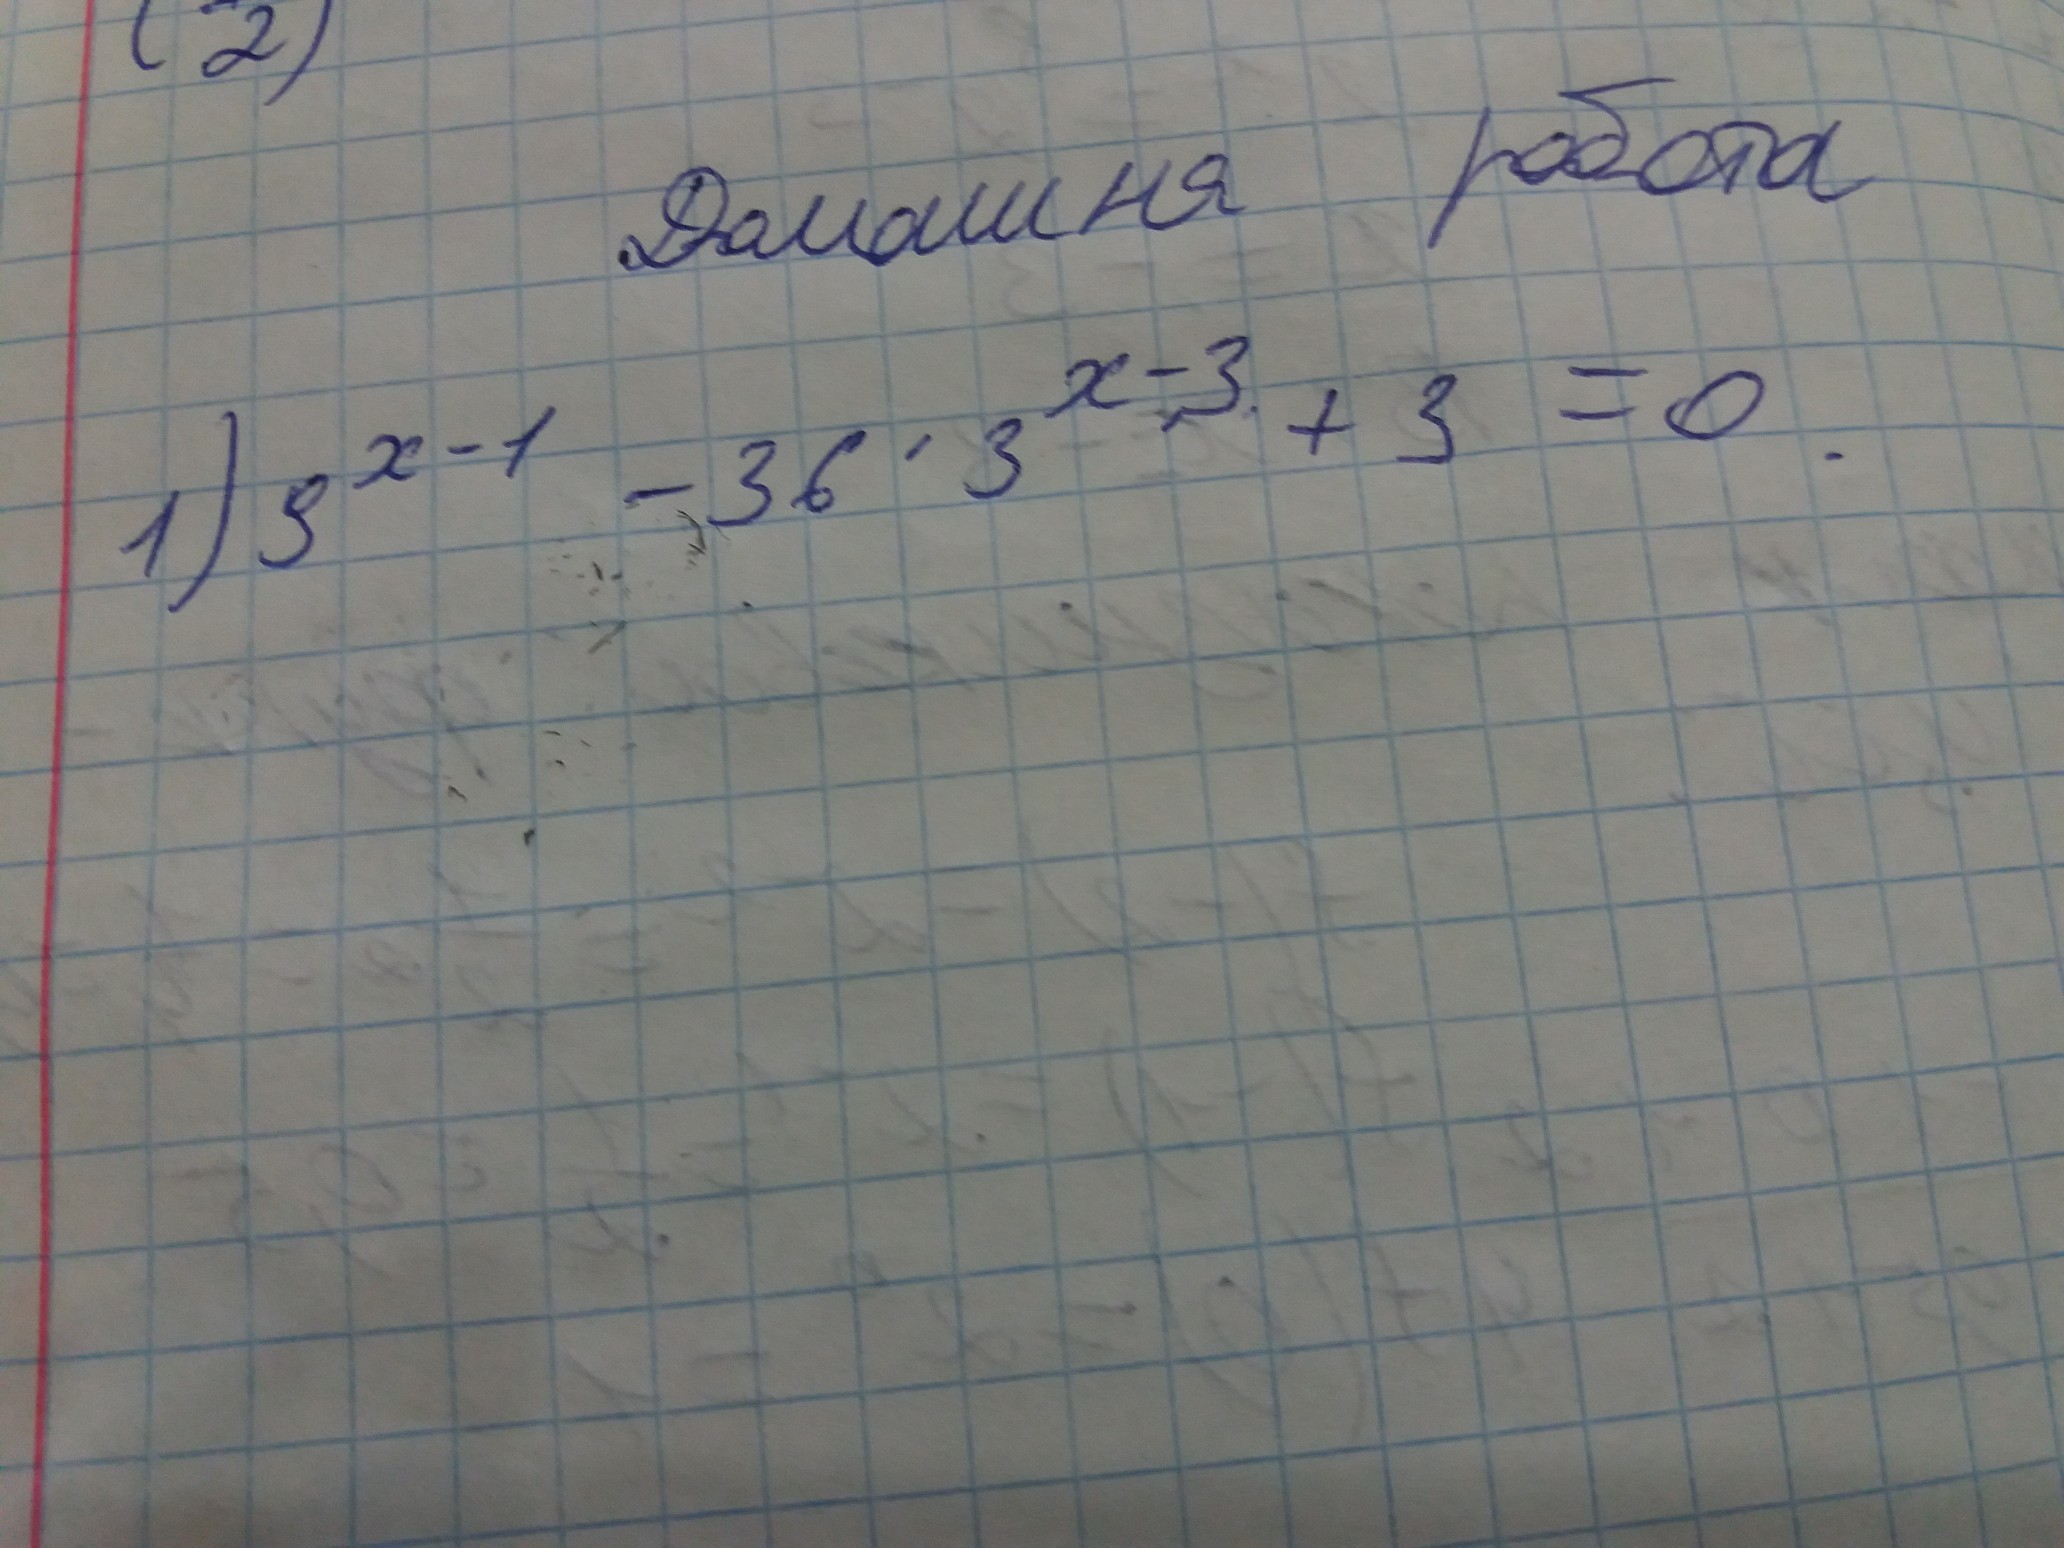 (2)
Домашня робота
1) 9^{x-1} - 36 · 3^{x-3} + 3 = 0.